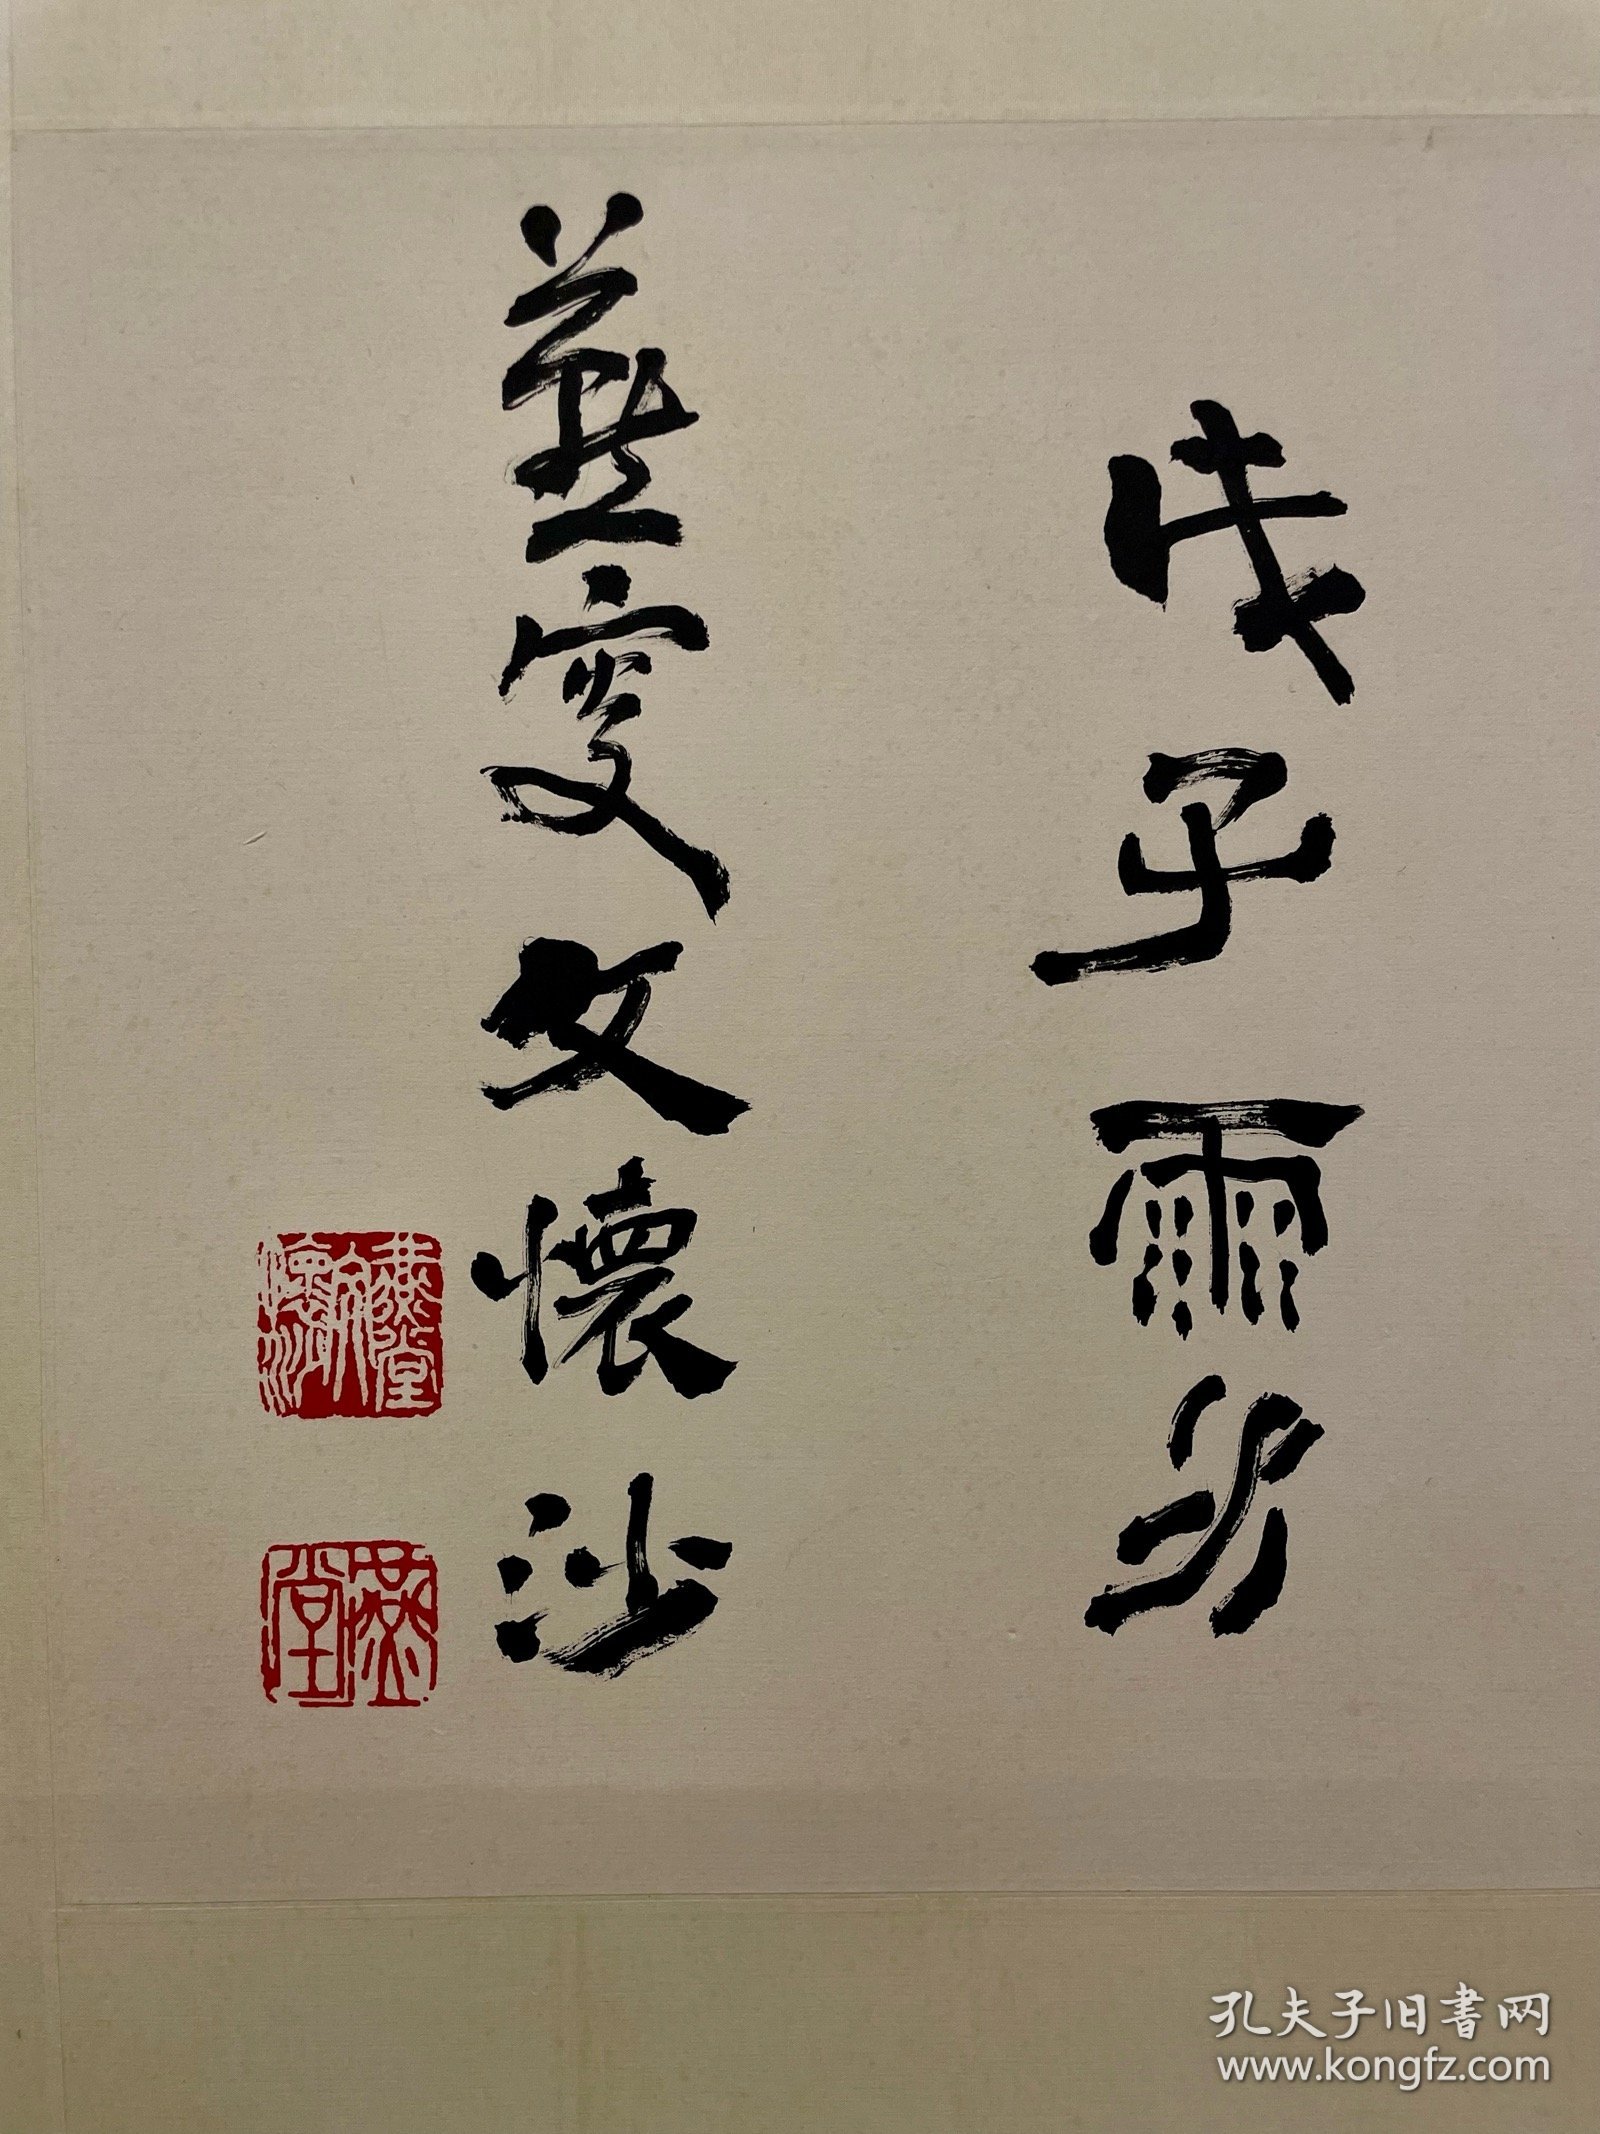 戊子雨水
燕叟文懷沙
燕堂
孔夫子旧書网
www.kongfz.com